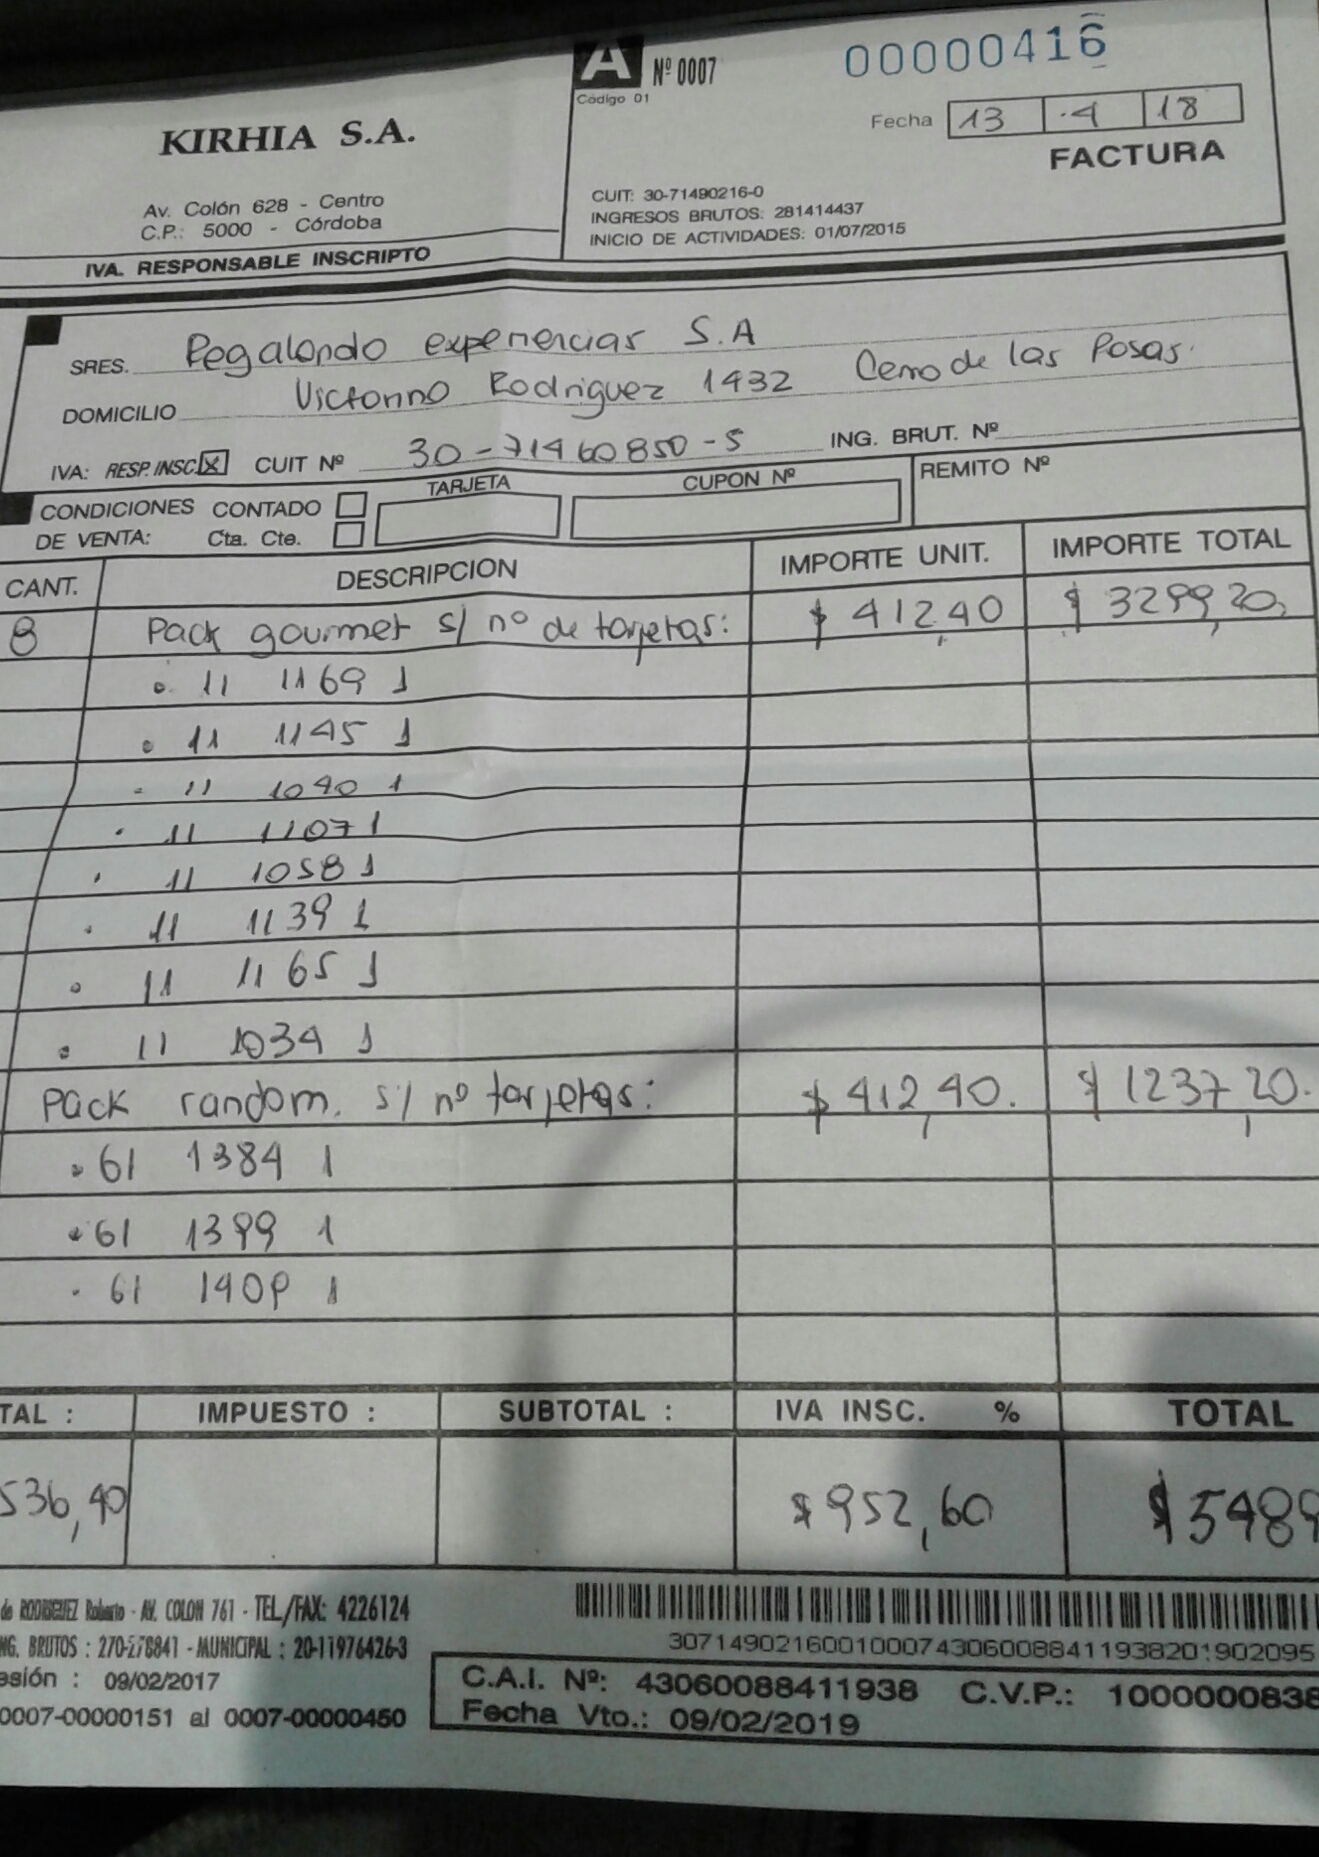 A Nº 0007 00000416
Código 01
Fecha 13 4 18
FACTURA
KIRHIA S.A.
Av. Colón 628 - Centro
C.P.: 5000 - Córdoba
IVA. RESPONSABLE INSCRIPTO
CUIT: 30-71490216-0
INGRESOS BRUTOS: 281414437
INICIO DE ACTIVIDADES: 01/07/2015
SRES. Regalando experiencias S.A
DOMICILIO Victorino Rodriguez 1432 Cerro de las Rosas.
IVA: RESP. INSC. X CUIT Nº 30-71460850-5 ING. BRUT. Nº
CONDICIONES CONTADO TARJETA CUPON Nº REMITO Nº
DE VENTA: Cta. Cte.
CANT. DESCRIPCION IMPORTE UNIT. IMPORTE TOTAL
8 Pack gourmet s/ nº de tarjetas: $ 412,40 $ 3299,20
11 1169 1
11 1145 1
11 1040 1
11 1107 1
11 1058 1
11 1139 1
11 1165 1
11 1034 1
Pack random. s/ nº tarjetas: $ 412,40. $ 1237,20.
61 1384 1
61 1399 1
61 1409 1
TAL : IMPUESTO : SUBTOTAL : IVA INSC. % TOTAL
536,40 $ 952,60 $ 5489
de RODRIGUEZ Roberto - AV. COLON 761 - TEL./FAX: 4226124
NG. BRUTOS : 270-27884-1 - MUNICIPAL : 20-11976426-3
esión : 09/02/2017
0007-00000151 al 0007-00000450
C.A.I. Nº: 43060088411938 C.V.P.: 1000000838
Fecha Vto.: 09/02/2019